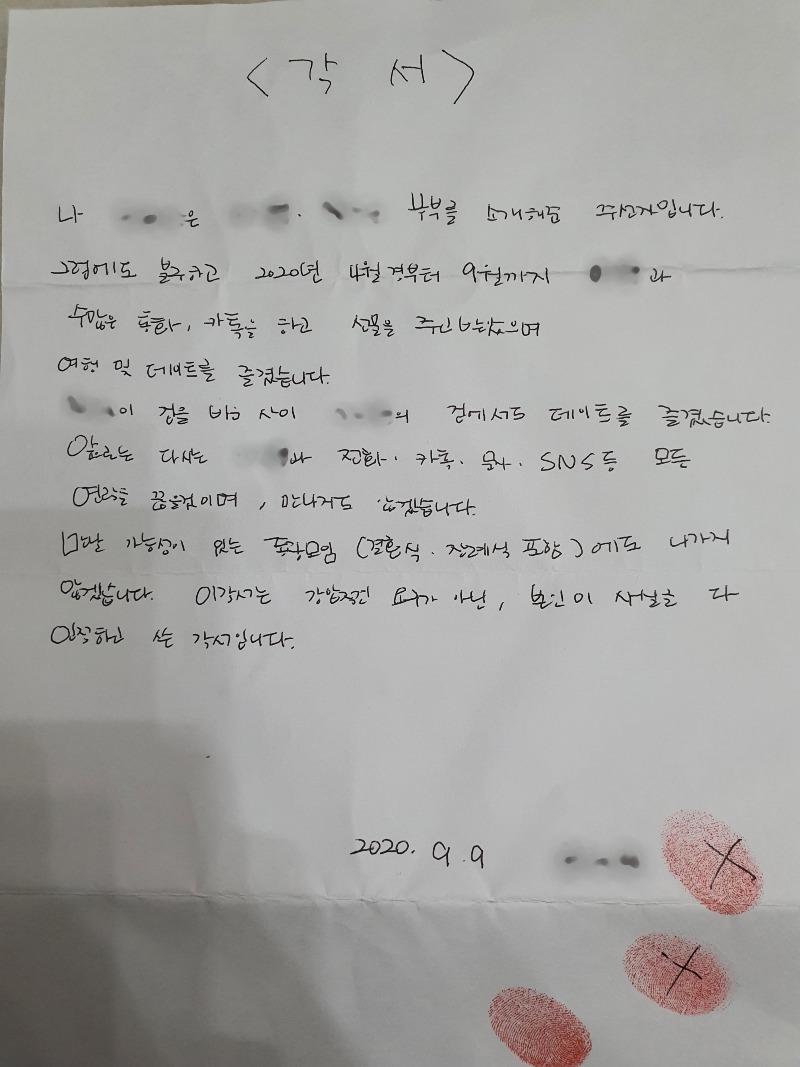 <각 서>
나 은 . 부부를 소개해준 주선자입니다.
그럼에도 불구하고 2020년 4월경부터 9월까지 과
수많은 통화, 카톡을 하고 선물을 주고 받았으며
여행 및 데이트를 즐겼습니다.
이 집을 비운 사이 의 집에서도 데이트를 즐겼습니다.
앞으로는 다시는 과 전화. 카톡. 문자. SNS등 모든
연락을 끊을것이며, 만나지도 않겠습니다.
만날 가능성이 있는 동창모임 (결혼식. 장례식 포함)에도 나가지
않겠습니다. 이각서는 강압적인 요구가 아닌, 본인이 사실을 다
인정하고 쓰는 각서입니다.
2020. 9. 9